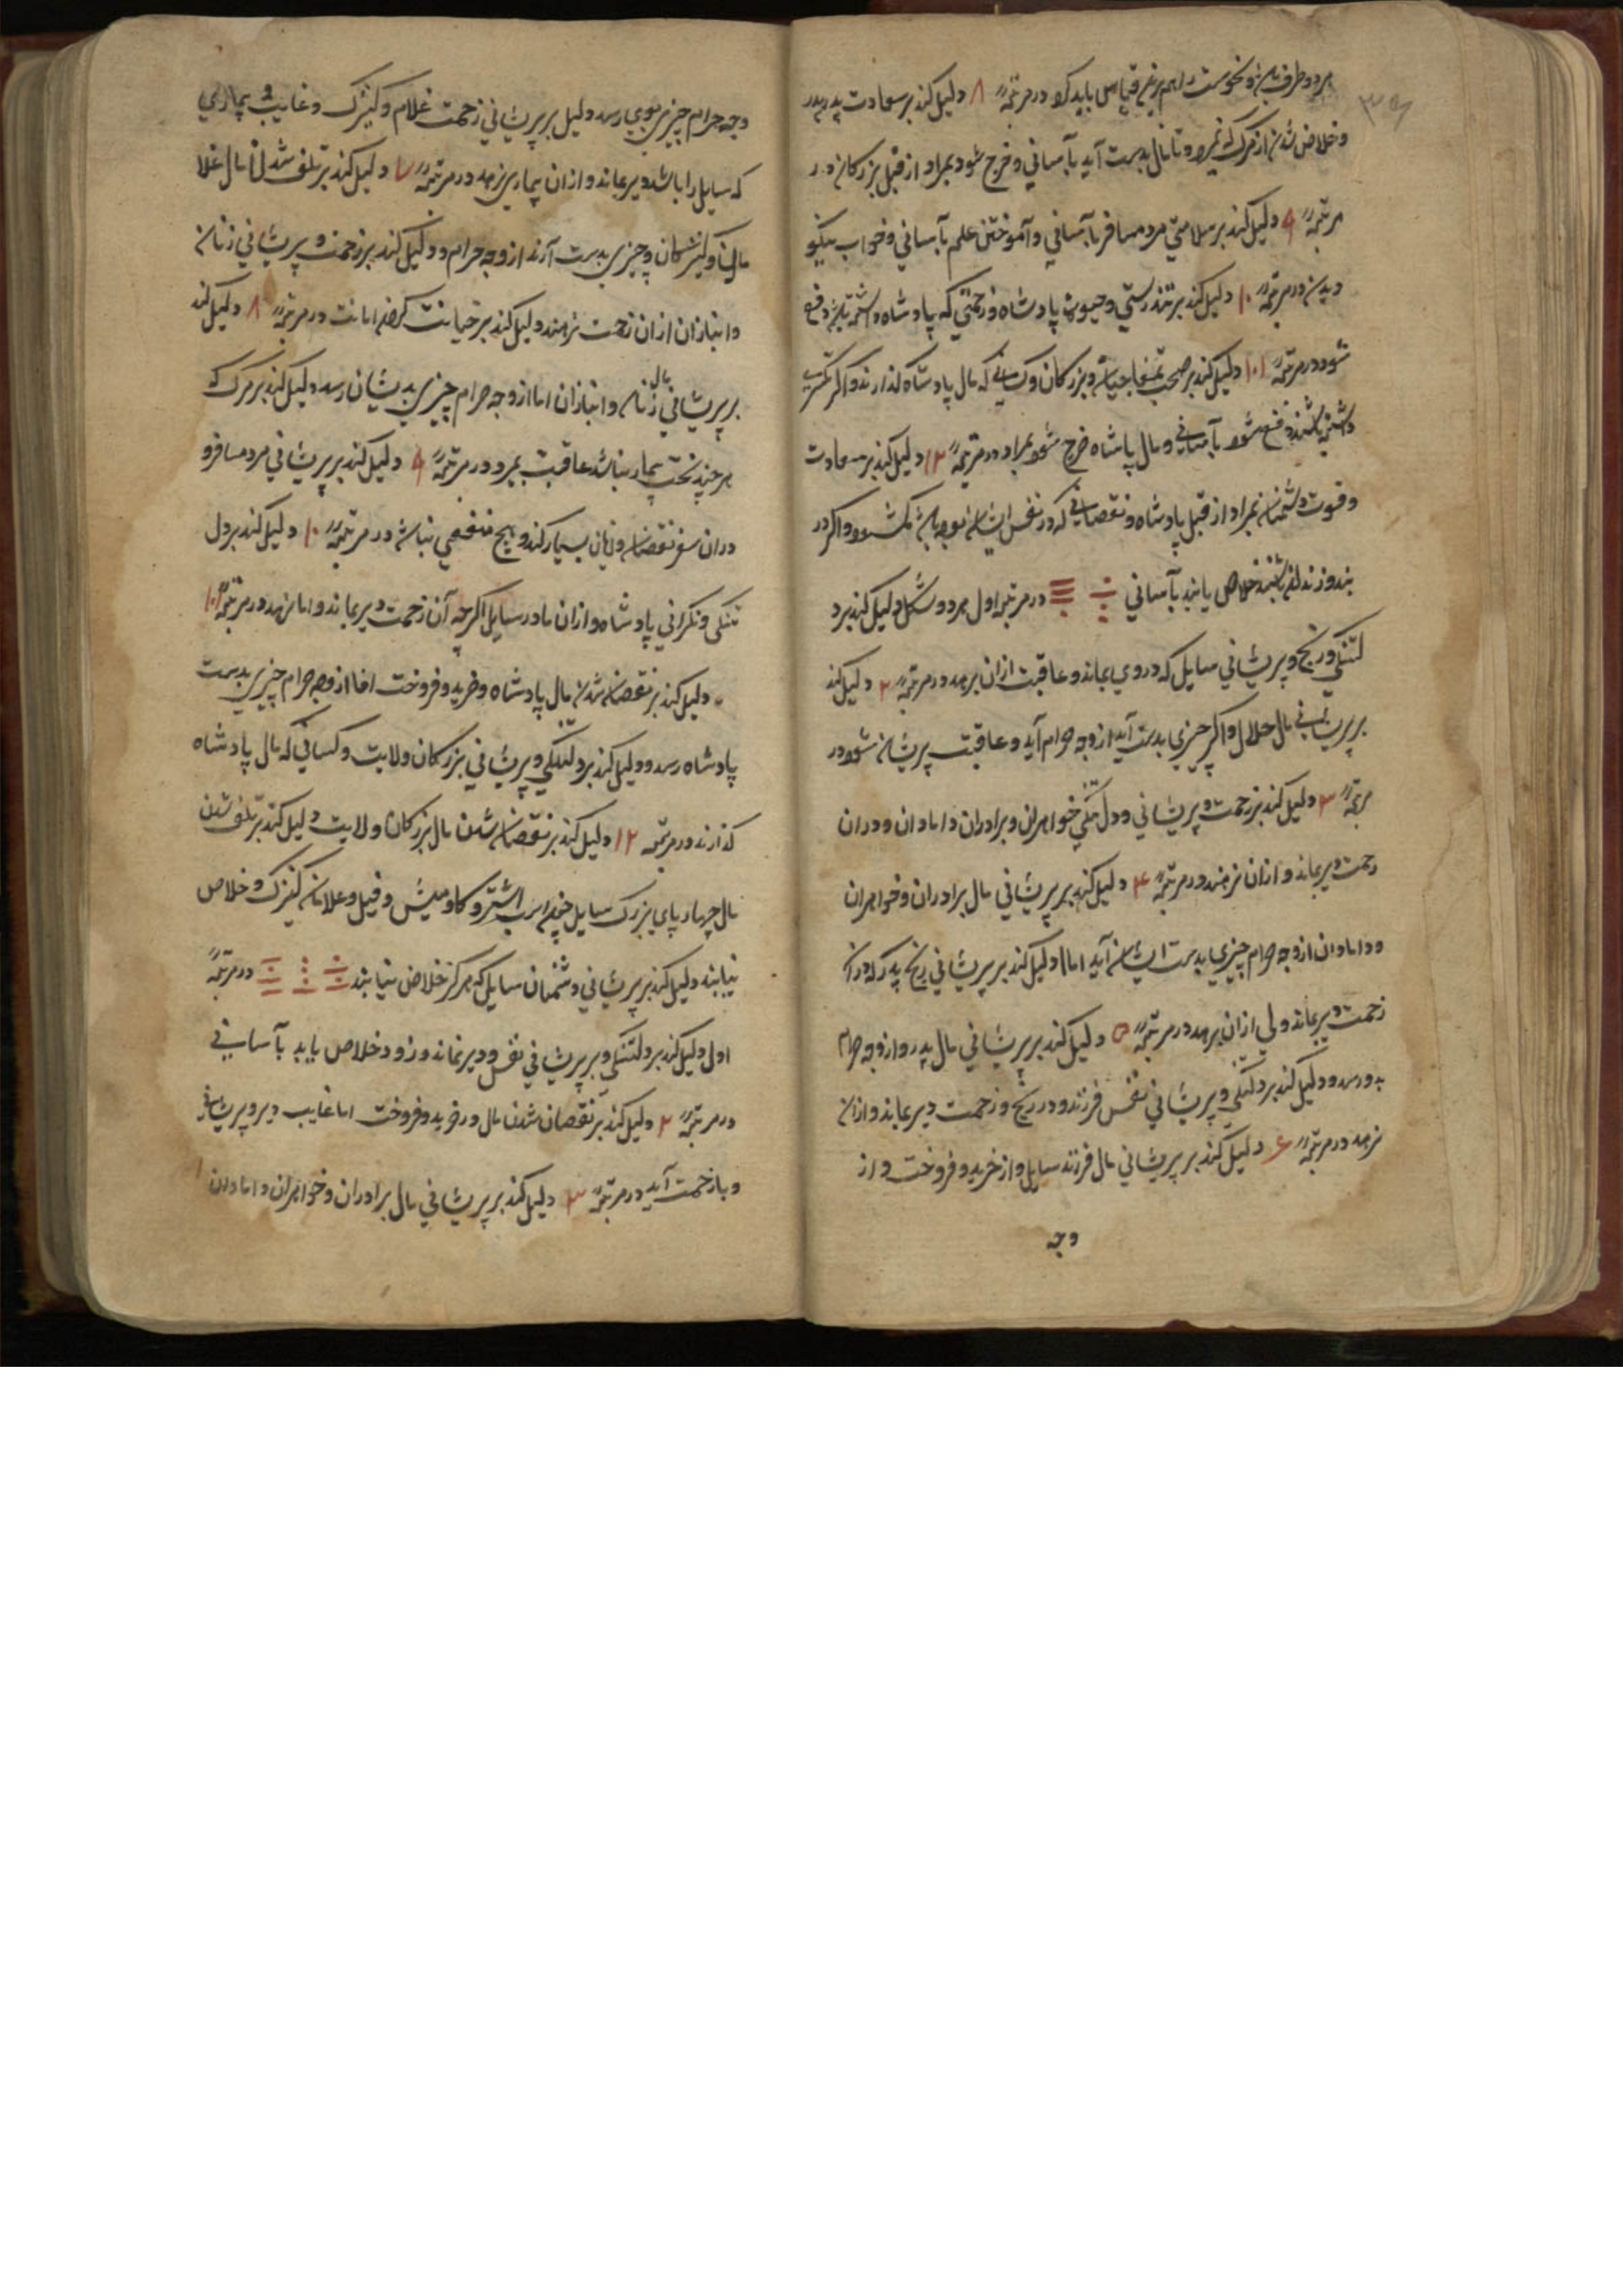 دلیل کند بر سعادت پدر
وخلاص شدن از مرک نمیرد وتا مال بدست آید بآسانی وخرج شود بمراد از قبل بزرکان در
مرتبهٔ ۹ دلیل کند بر سلامتی مردم مسافر بآسانی وآموختن علم بآسانی وخواب نیکو
دیدن در مرتبهٔ ۱۰ دلیل کند بر تندرستی پادشاه وزحمتی که پادشاه داشته باشد دفع
شود در مرتبهٔ ۱۱ دلیل کند بر بزرکان وکسانی که مال پادشاه کذارند واکر
داشته باشند دفع شود بآسانی ومال پادشاه خرج شود بمراد در مرتبهٔ ۱۲ دلیل کند بر سعادت
وقوت دشمنان بمراد از قبل پادشاه ونقصانی که در نفس ایشان بوده باشد کم شود واکر در
بند وزندان باشند خلاص یابند بآسانی در مرتبهٔ اول هر دو شکل دلیل کند بر د
لتنکی ورنج وپریشانی سایل که در وی بماند وعاقبت ازان برهد در مرتبهٔ ۲ دلیل کند
بر پریشانی مال حلال واکر چیزی بدست آید از وجه حرام آید وعاقبت پریشان شود در
مرتبهٔ ۳ دلیل کند بر زحمت وپریشانی ودل تنکی خواهران وبرادران ودامادان ودران
زحمت دیر بماند وازان نرهند در مرتبهٔ ۴ دلیل کند بر پریشانی مال برادران وخواهران
ودامادان از وجه حرام چیزی بدست ایشان آید اما دلیل کند بر پریشانی رنج پدر که دران
زحمت دیر بماند ولی ازان برهد در مرتبهٔ ۵ دلیل کند بر پریشانی مال پدر واز وجه حرام
بدو رسد ودلیل کند بر دلتنکی وپریشانی نفس فرزند ودر رنج وزحمت دیر بماند وازان
نرهد در مرتبهٔ ۶ دلیل کند بر پریشانی مال فرزند سایل واز خرید وفروخت واز
وجه
وجه حرام چیزی بوی رسد ودلیل بر پریشانی زحمت غلام وکنیزک وغایب وبیماری
که سایل را باشد دیر بماند وازان بیماری نرهد در مرتبهٔ ۷ دلیل کند بر تلف شدن مال غلا
مان وکنیزکان وچیزی بدست آرند از وجه حرام ودلیل کند بر زحمت وپریشانی زنان
وانبازان ازان زحمت نرهند ودلیل کند بر خیانت کردن امانت در مرتبهٔ ۸ دلیل کند
بر پریشانی مال زنان وانبازان اما از وجه حرام چیزی بدیشان رسد ودلیل کند بر مرک
هر چند سخت بیمار نباشد عاقبت بمیرد در مرتبهٔ ۹ دلیل کند بر پریشانی مرد مسافر و
دران سفر نقصان وزیان بسیار کند وهیچ منفعی نباشد در مرتبهٔ ۱۰ دلیل کند بر دل
تنکی ونکرانی پادشاه وازان مادر سایل اکرچه آن زحمت دیر بماند واما نرهد در مرتبهٔ ۱۱
دلیل کند بر نقصان شدن مال پادشاه وخرید وفروخت اما از وجه حرام چیزی بدست
پادشاه رسد ودلیل کند بر دلتنکی وپریشانی بزرکان ولایت وکسانی که مال پادشاه
کذارند در مرتبهٔ ۱۲ دلیل کند بر نقصان شدن مال بزرکان ولایت دلیل کند بر تلف شدن
مال چهارپای بزرک سایل چون اسب واشتر وکاومیش وفیل وغلامان کنیزک وخلاص
نیابند ودلیل کند بر پریشانی دشمنان سایل که هرکز خلاص نیابند در مرتبهٔ
اول دلیل کند بر دلتنکی وبر پریشانی نفس ودیر نماند وزود خلاص یابد بآسانی
در مرتبهٔ ۲ دلیل کند بر نقصان شدن مال در خرید وفروخت اما غایب دیر وپریشان
وبا زحمت آید در مرتبهٔ ۳ دلیل کند بر پریشانی مال برادران وخواهران ودامادان